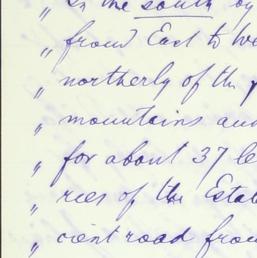 " In the south by
" from East to We
" northerly of the
" mountains and
" for about 37 le
" ries of the Estat
" cient road from